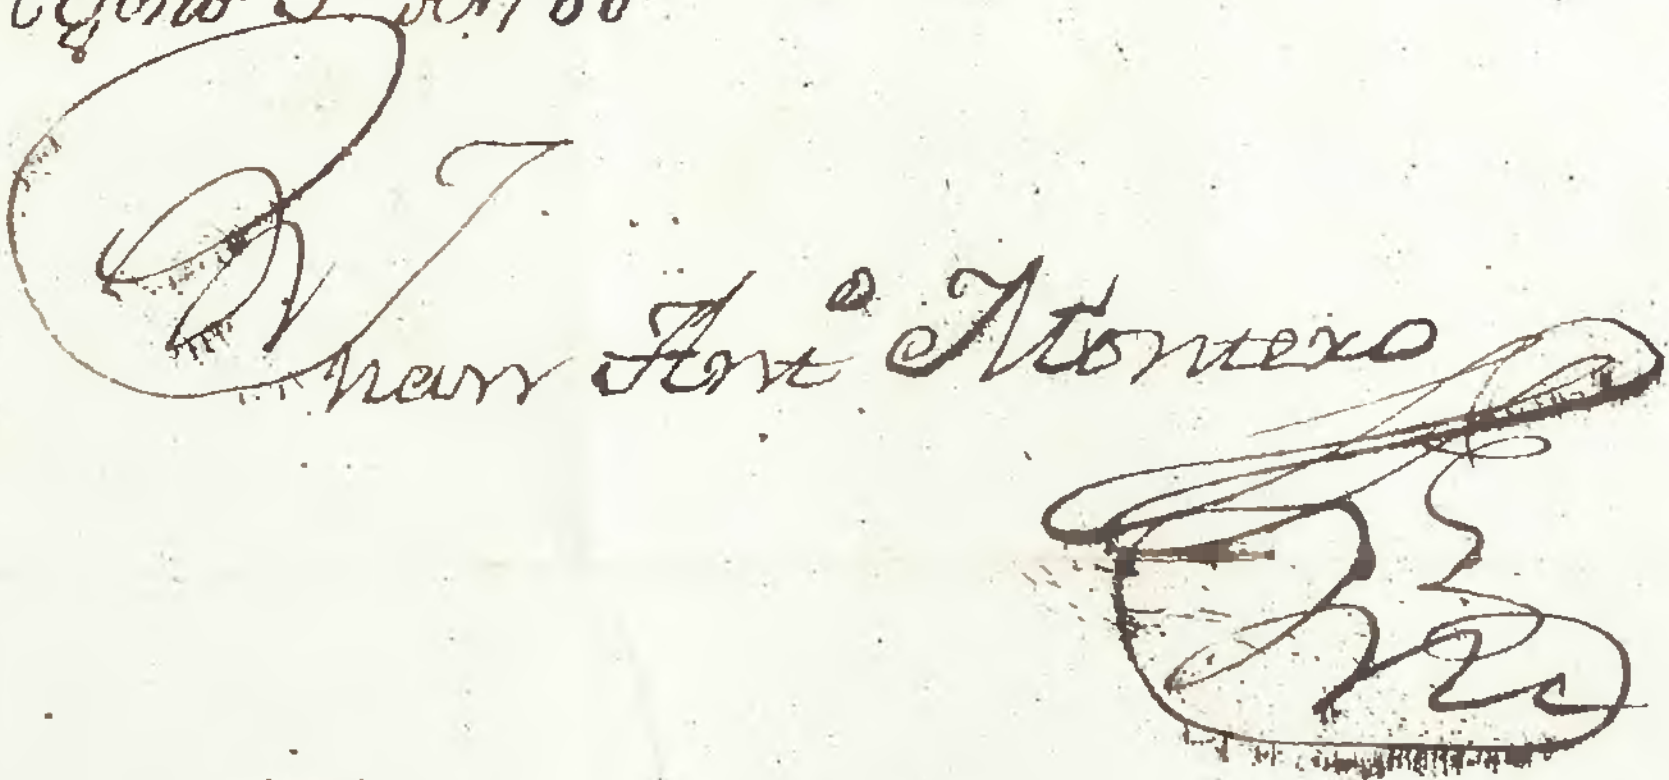 Juan Antº Montero